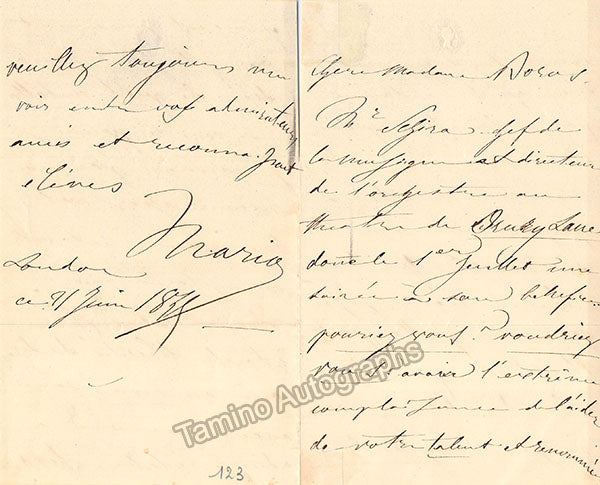 Chere Madame
Mr Schira chef de
la musique et directeur
de l'orchestre au
theatre de Drury Lane
donne le 1er Juillet une
soirée à son bénéfice
pouriez vous? voudriez
vous avoir l'extrême
complaisance de l'aider
de votre talent et renommée
veuillez toujours me
voir entre vos admirateurs
amies et reconnaissant
élèves
Mario
London
ce 21 Juin
123
Tamino Autographs